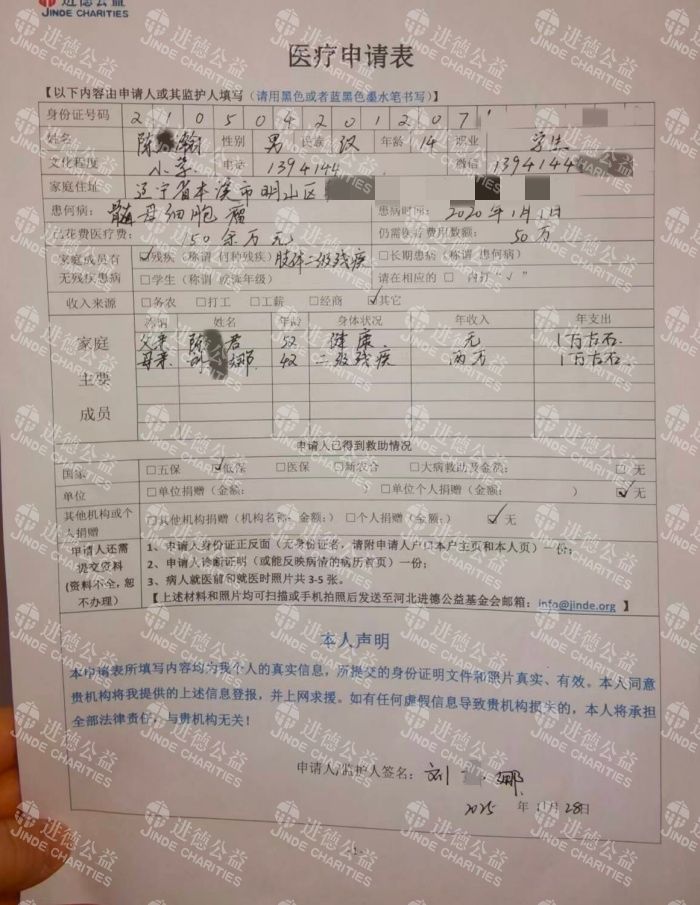 进德公益
JINDE CHARITIES
医疗申请表
【以下内容由申请人或其监护人填写（请用黑色或者蓝黑色墨水笔书写）】
身份证号码 2 1 0 5 0 4 2 0 1 2 0 7
姓名 陈 瀚 性别 男 民族 汉 年龄 14 职业 学生
文化程度 小学 电话 1394144 微信 1394144
家庭住址 辽宁省本溪市明山区
患何病： 髓母细胞瘤 患病时间： 2020年1月1日
已花费医疗费： 150余万元 仍需医疗费用数额： 50万
家庭成员有无残疾患病 ☑残疾（称谓 何种残疾）肢体二级残疾 □长期患病（称谓 患何病）
□学生（称谓 或读年级） 请在相应的 □ 内打“√ ”
收入来源 □务农 □打工 □工薪 □经商 ☑其它
家庭主要成员 称谓 姓名 年龄 身体状况 年收入 年支出
父亲 陈 君 52 健康 无 1万左右
母亲 刘 娜 42 二级残疾 两万 1万左右
申请人已得到救助情况
国家 □五保 ☑低保 □医保 □新农合 □大病救助及金额： □ 无
单位 □单位捐赠（金额： ） □单位个人捐赠（金额： ） ☑ 无
其他机构或个人捐赠 □其他机构捐赠（机构名称：金额：）□个人捐赠（金额：） ☑ 无
申请人还需提交资料（资料不全，恕不办理）
1、申请人身份证正反面（无身份证名，请附申请人户口本户主页和本人页）一份；
2、申请人诊断证明（或能反映病情的病历首页）一份；
3、病人就医前和就医时照片共 3-5 张。
【上述材料和照片均可扫描或手机拍照后发送至河北进德公益基金会邮箱：info@jinde.org 】
本人声明
本申请表所填写内容均为我个人的真实信息，所提交的身份证明文件和照片真实、有效。本人同意
贵机构将我提供的上述信息登报，并上网求援。如有任何虚假信息导致贵机构损失的，本人将承担
全部法律责任，与贵机构无关！
申请人/监护人签名： 刘 娜
2025 年 11月28日